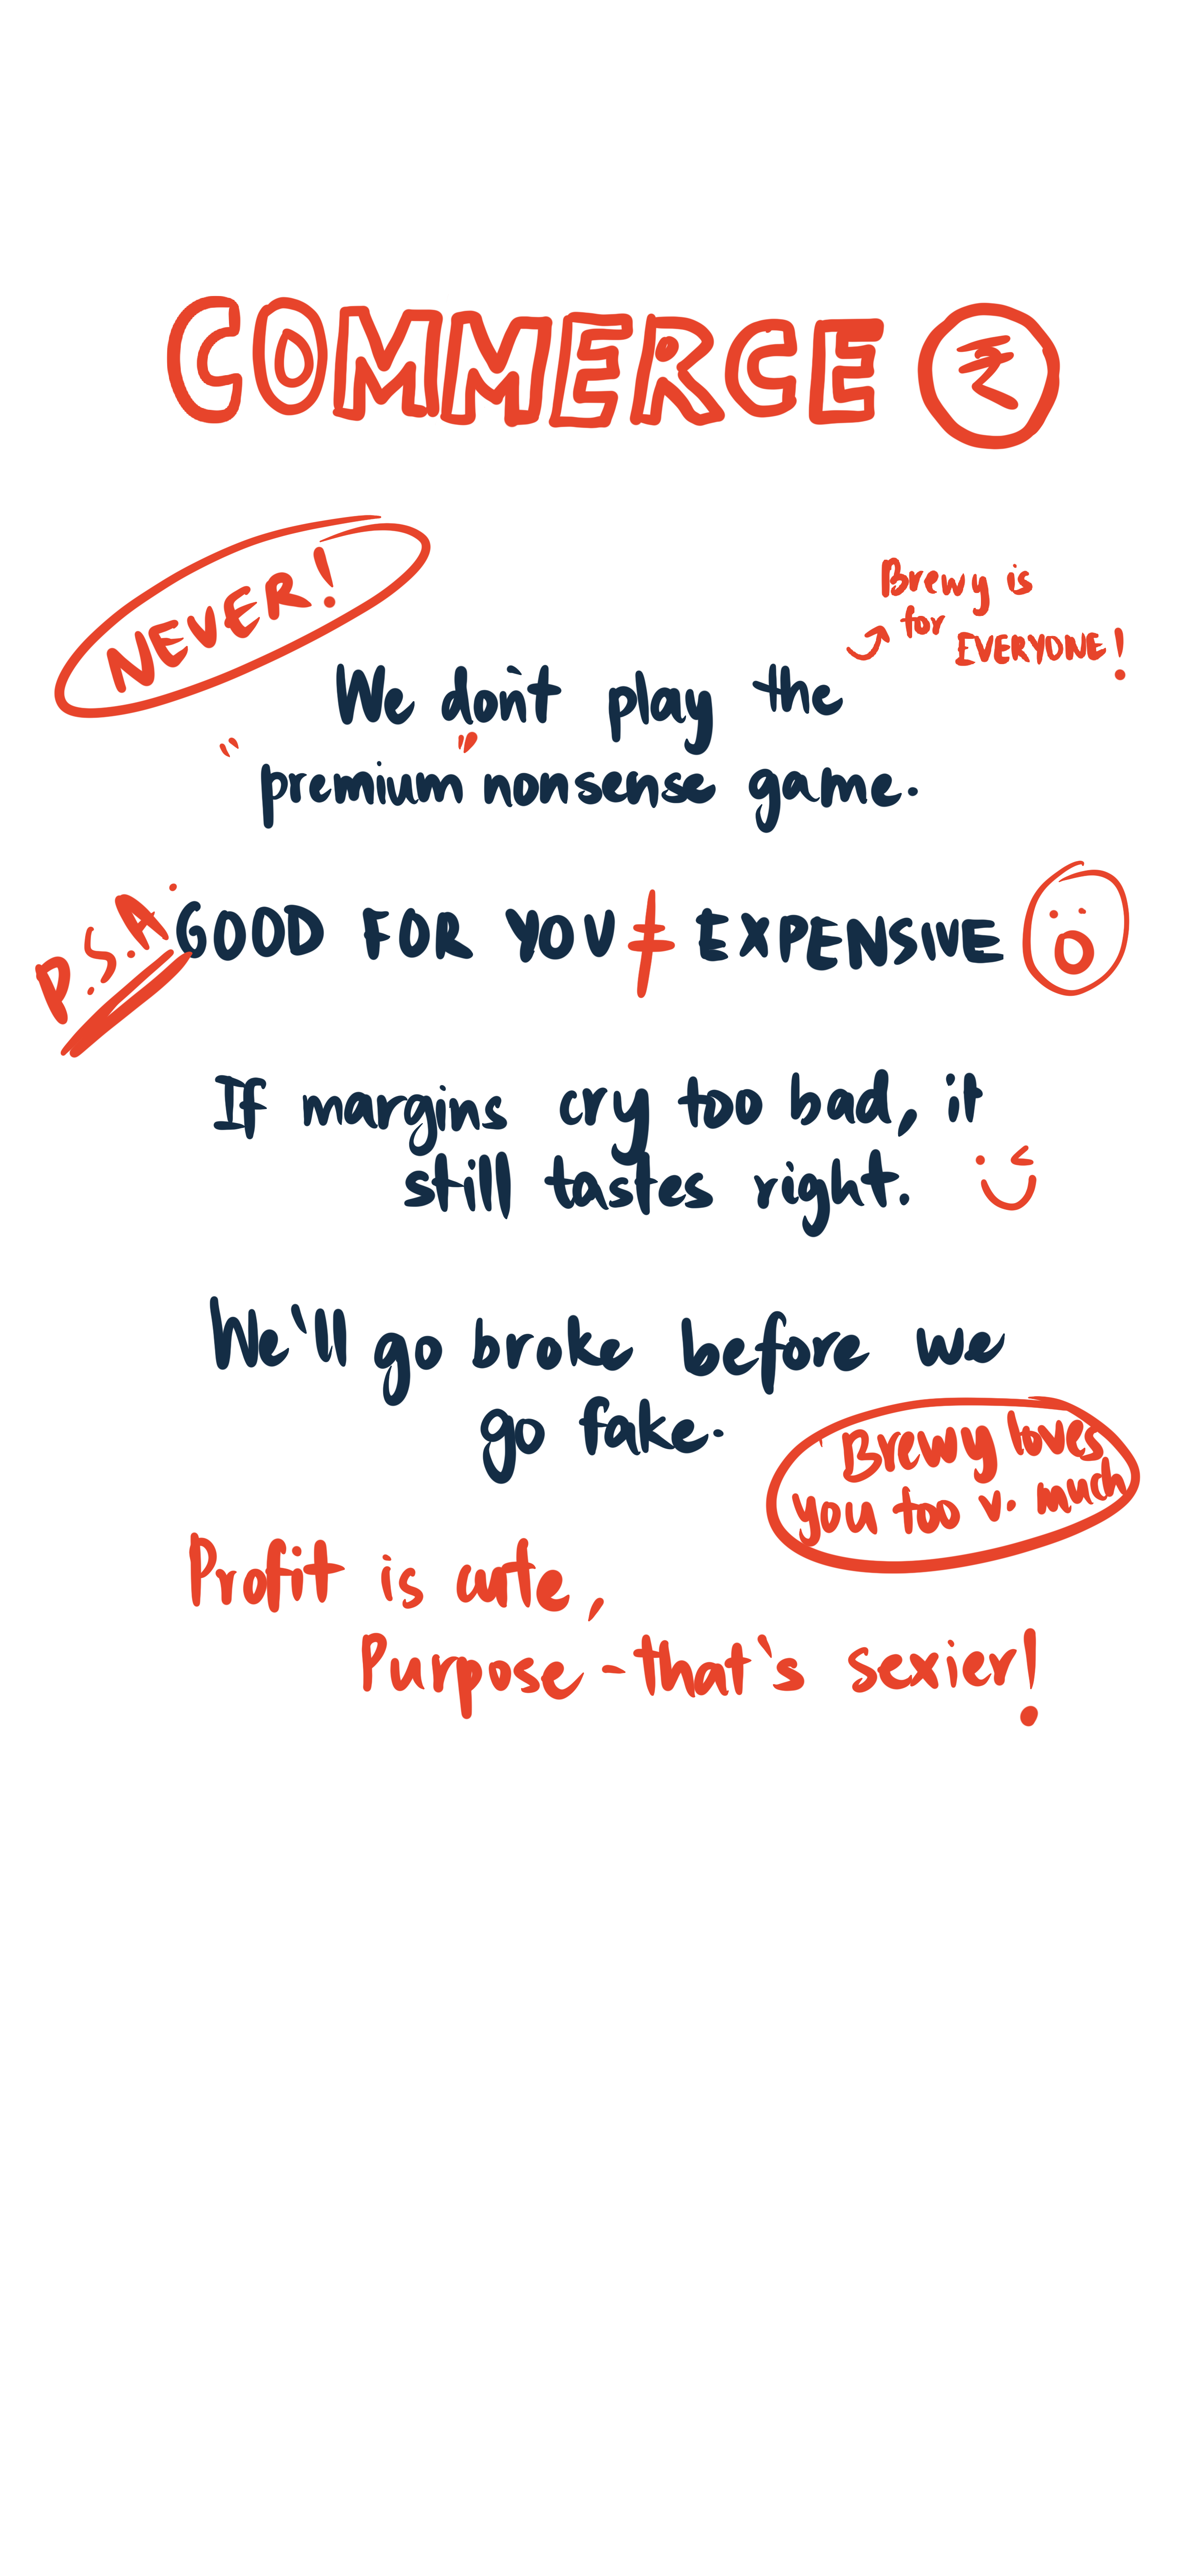 COMMERCE ₹
NEVER!
Brewy is
for
EVERYONE!
We don't play the
"premium" nonsense game.
P.S.A.
GOOD FOR YOU ≠ EXPENSIVE
If margins cry too bad, it
still tastes right.
We'll go broke before we
go fake.
Brewy loves
you too v. much
Profit is cute,
Purpose - that's sexier!